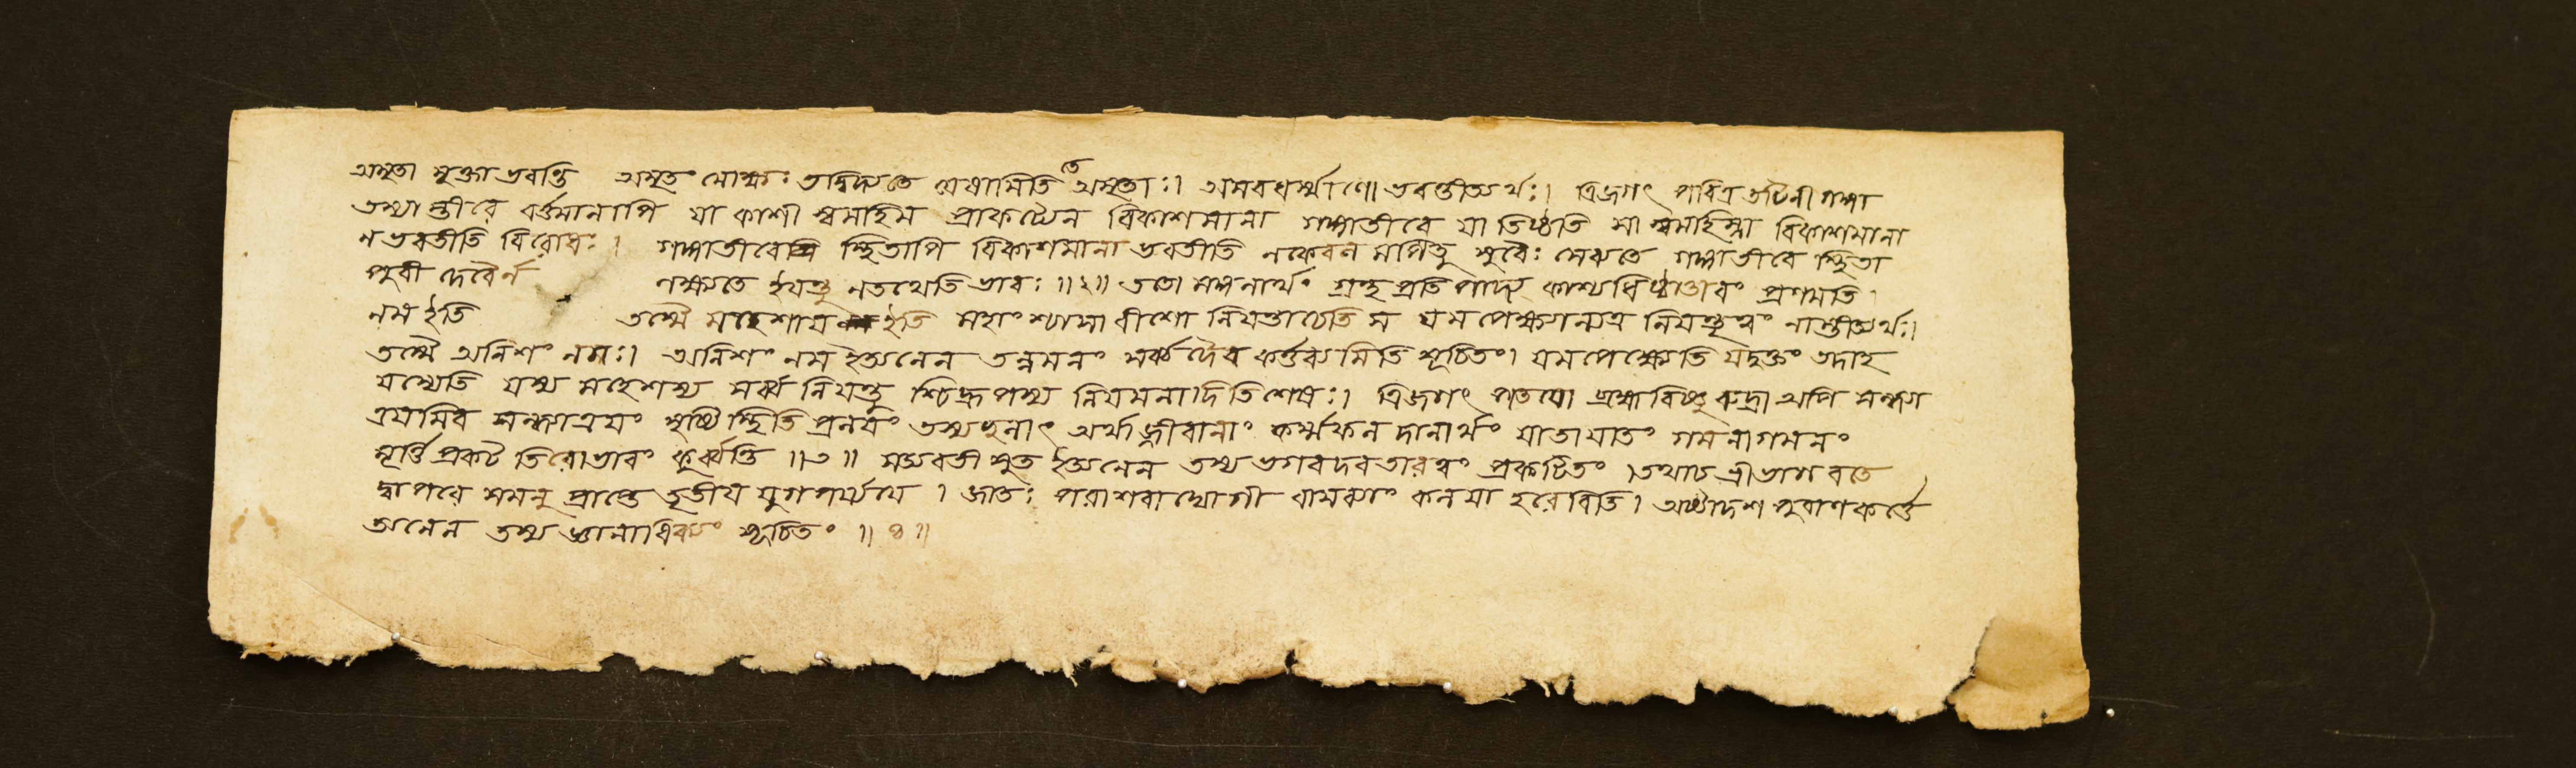 অমৃতা মুক্তা ভবন্তি অমৃতং মোক্ষঃ তদ্বিদ্যতে যেষামিতি তে অমৃতাঃ। অমরধর্ম্মাণো ভবন্তীত্যর্থঃ। ত্রিজগৎ পবিত্র তটিনী গঙ্গা
তস্যাস্তীরে বর্ত্তমানাপি যা কাশী স্বমহিম প্রাকট্যেন বিকাশমানা গঙ্গাতীরে যা তিষ্ঠতি সা স্বমহিম্না বিকাশমানা
ন ভবতীতি বিরোধঃ। গঙ্গাতীরে স্থিতাপি বিকাশমানা ভবতীতি ন কেবল মপিতু সুরৈঃ সেব্যতে গঙ্গাতীরে স্থিতা
পুরী দেবৈর্ন লক্ষ্যতে ইয়ন্তু নতথেতি ভাবঃ ॥২॥ ততো মঙ্গলার্থং গ্রন্থ প্রতিপাদ্য কাশ্যধিষ্ঠাতারং প্রণমতি
নম ইতি তস্মৈ মহেশায় ইতি মহাংশ্চাসাবীশো নিয়ন্তাচেতি স যমপেক্ষ্যান্যত্র নিয়ন্তৃত্বং নাস্তীত্যর্থঃ।
তস্মৈ অনিশং নমঃ। অনিশং নম ইত্যনেন তন্নমনং সর্ব্বদৈব কর্ত্তব্যমিতি সূচিতং। যমপেক্ষ্যেতি যদুক্তং তদাহ
যস্যেতি যস্য মহেশস্য সর্ব্ব নিয়ন্তু শ্চিদ্রূপস্য নিয়মনাদিতিশেষঃ। ত্রিজগৎ পতয়ো ব্রহ্মাবিষ্ণু রুদ্রা অপি সন্ধ্যা
ত্রয়মিব সন্ধ্যাত্রয়ং সৃষ্টিস্থিতি প্রলয়ং তস্য অর্থাজ্জীবানাং কর্ম্মফল দানার্থং যাতায়াতং গমনাগমনং
মূর্ত্তি প্রকট তিরোভাবং কুর্ব্বন্তি ॥৩॥ সত্যবতী সুত ইত্যনেন তস্য ভগবদবতারত্বং প্রকটিতং। তথাচ শ্রীভাগবতে
দ্বাপরে সমনু প্রাপ্তে তৃতীয় যুগপর্য্যয়ে । জাতঃ পরাশরাদ্যোগী বাসব্যাং কলয়া হরেরিতি। অষ্টাদশ পুরাণকর্ত্তে
অনেন তস্য জ্ঞানাধিক্যং সূচিতং ॥৪॥